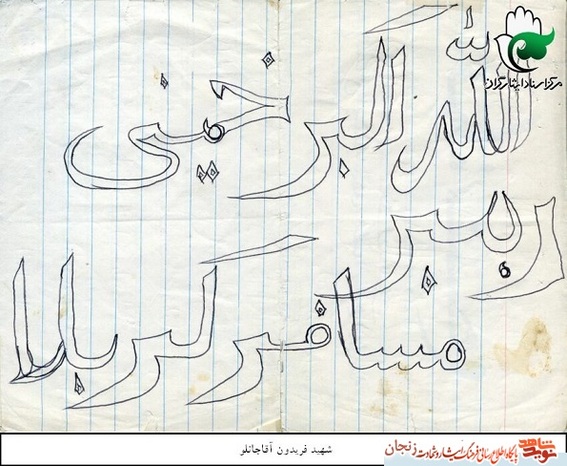 مرکز اسناد ایثارگران
الله اکبر خمینی
رهبر
مسافر کربلا
شهید فریدون آقاجانلو
نوید شاهد
پایگاه اطلاع رسانی فرهنگ ایثار و شهادت زنجان